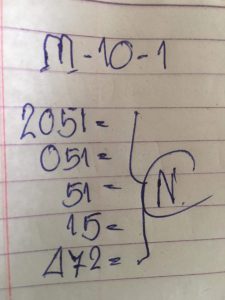 M-10-1
2051=
051=
51=
15=
472=
N.